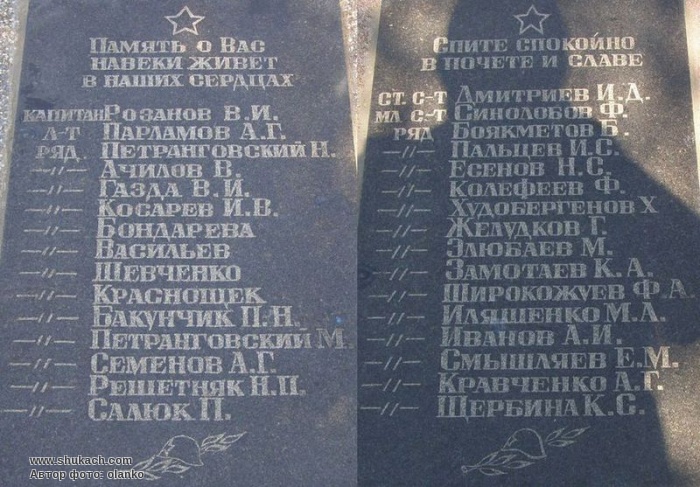 Память о Вас
навеки живет
в наших сердцах
капитан Розанов В.И.
л-т Парламов А.Г.
ряд. Петранговский Н.
—//— Ачилов В.
—//— Газда В.И.
—//— Косарев И.В.
—//— Бондарева
—//— Васильев
—//— Шевченко
—//— Краснощек
—//— Бакунчик П.Н.
—//— Петранговский М.
—//— Семенов А.Г.
—//— Решетняк Н.П.
—//— Салюк П.
Спите спокойно
в почете и славе
ст. с-т Дмитриев И.Д.
мл с-т Синолобов Ф.
ряд Боякметов Б.
—//— Пальцев И.С.
—//— Есенов Н.С.
—//— Колефеев Ф.
—//— Худобергенов Х
—//— Желудков Г.
—//— Злюбаев М.
—//— Замотаев К.А.
—//— Широкожуев Ф.А
—//— Иляшенко М.А.
—//— Иванов А.И.
—//— Смышляев Е.М.
—//— Кравченко А.Г.
—//— Щербина К.С.
www.shukach.com
Автор фото: olanko